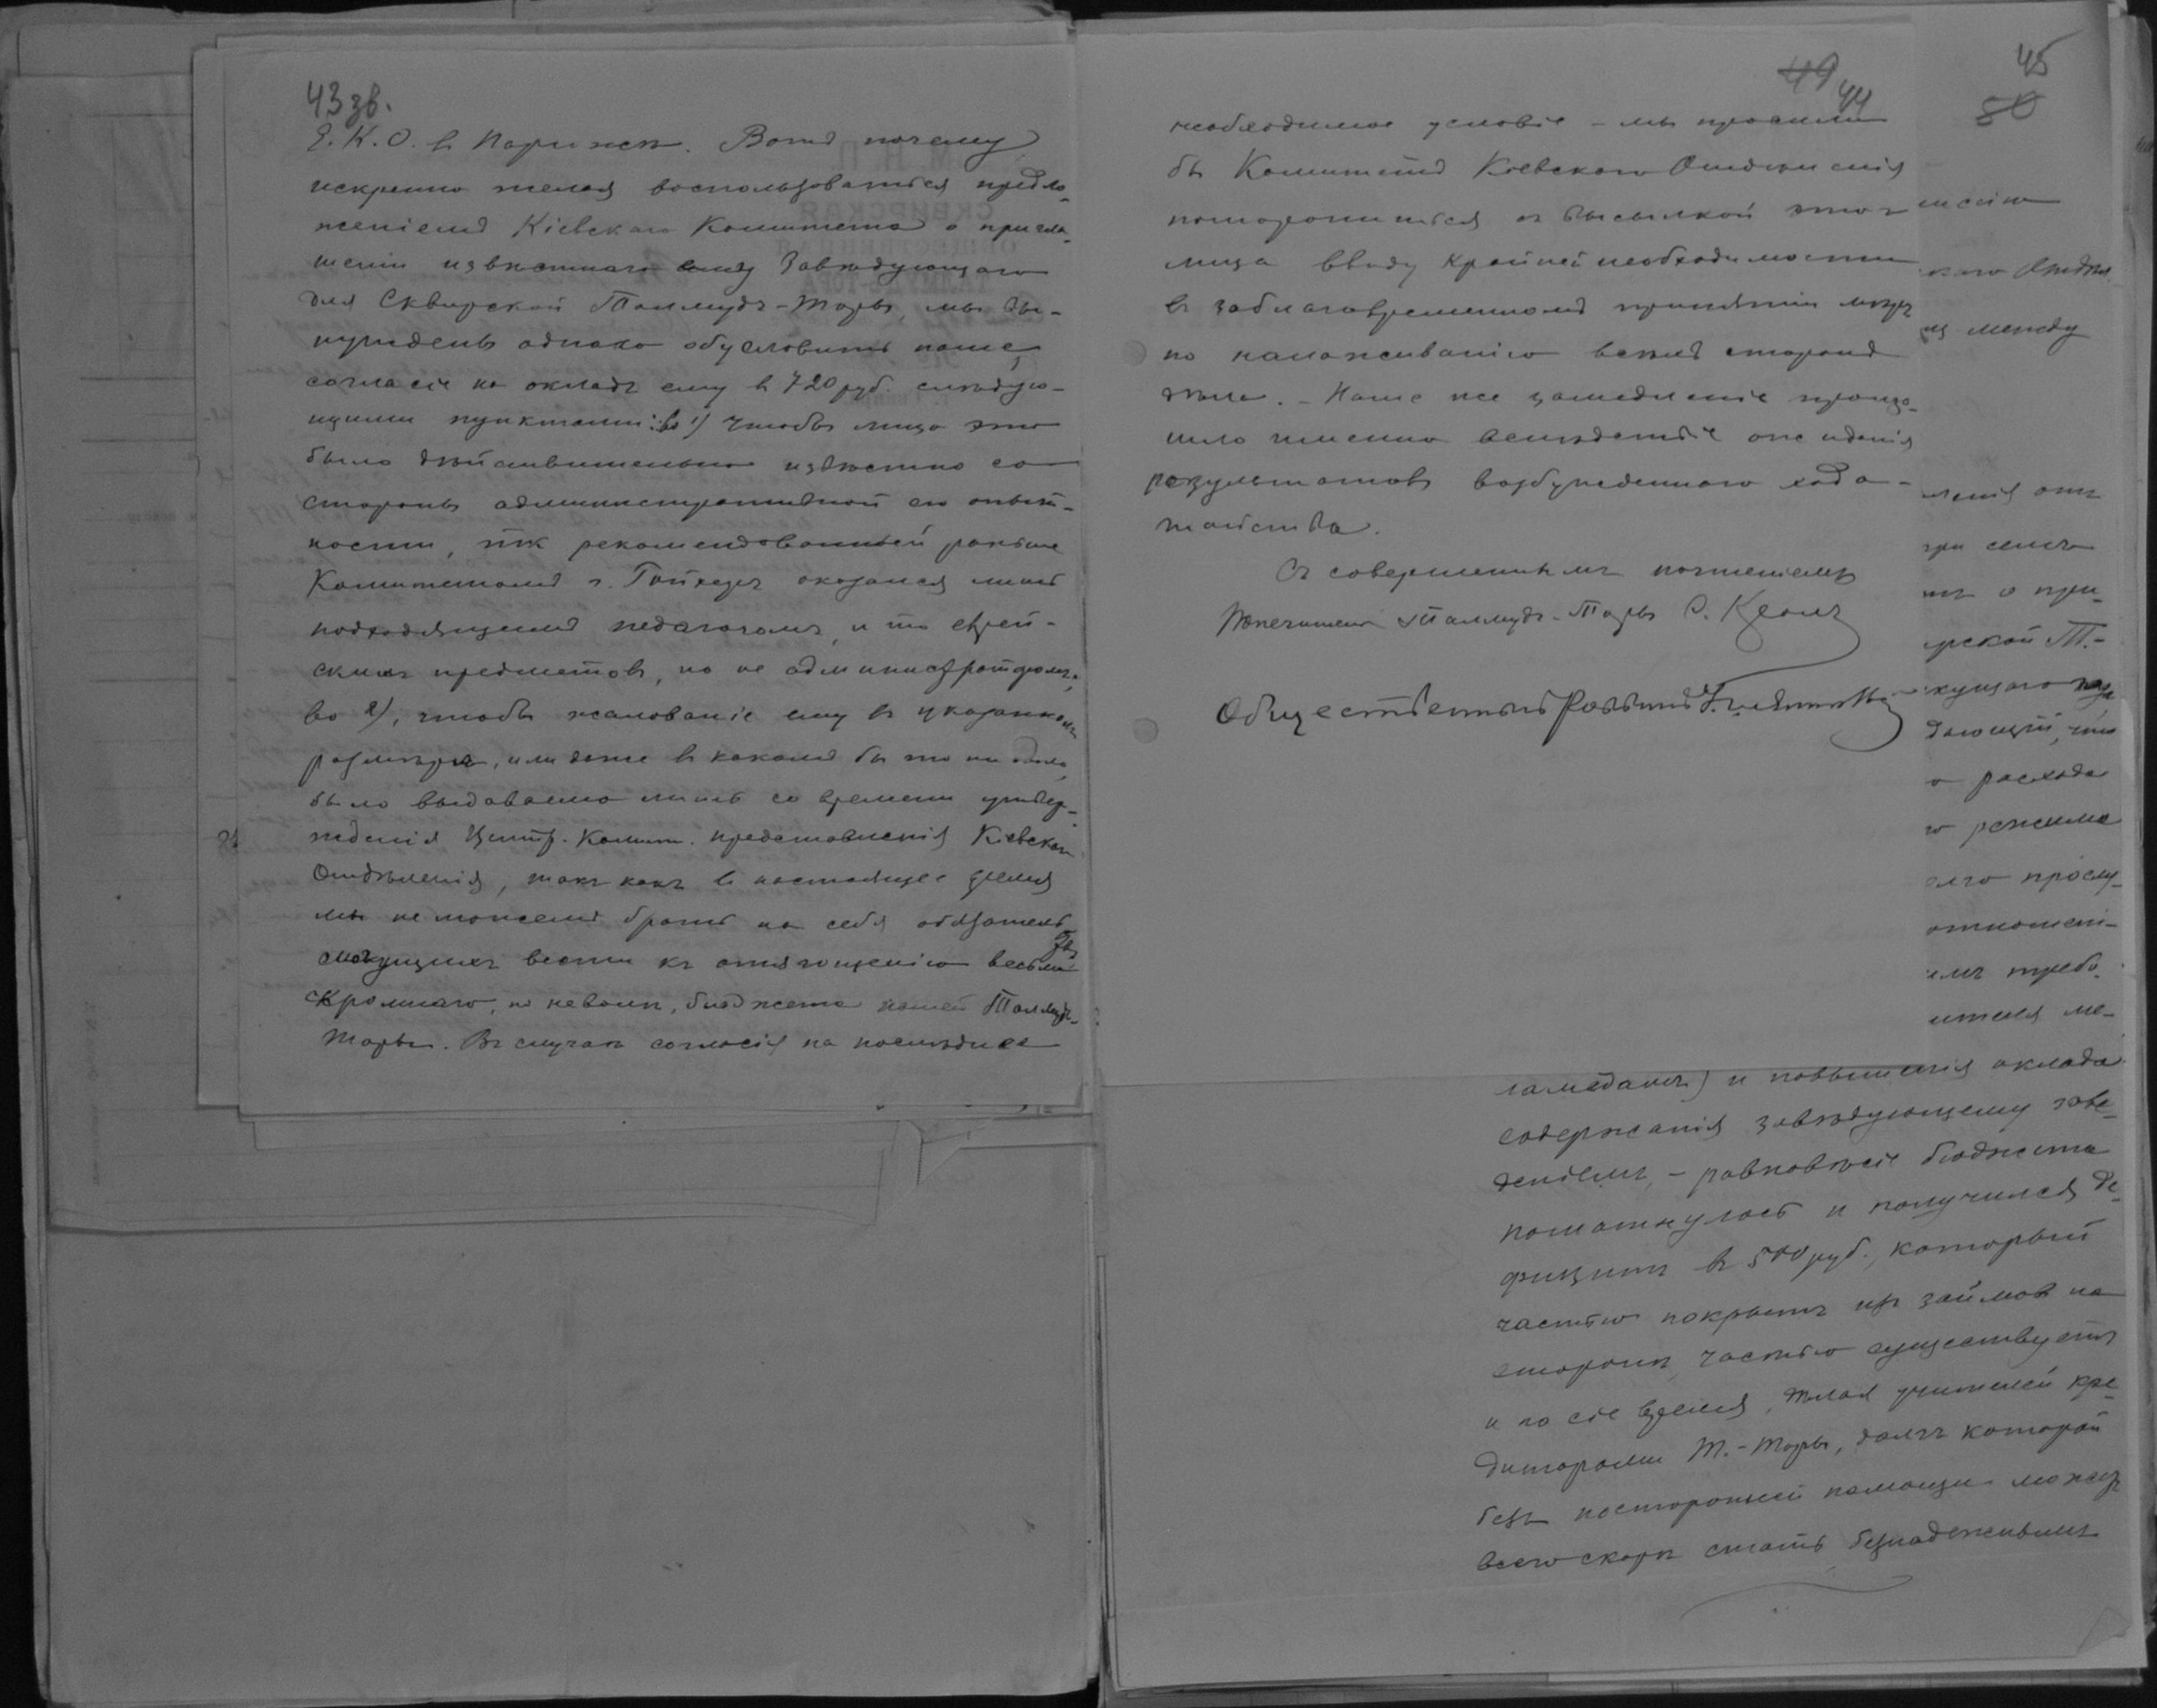 43 зв.
Е. К. О. в Парижѣ. Вотъ почему
искренно желая воспользоваться предло-
женіемъ Кіевскаго Комитета о пригла-
шеніи извѣстнаго ему Завѣдующаго
для Сквирской Талмудъ-Торы, мы вы-
нуждены однако обусловить наше
согласіе на окладъ ему в 720 руб. слѣдую-
щими пунктами: во 1) чтобы лицо это
было дѣйствительно извѣстно со
стороны административной его опыт-
ности, т.к. рекомендованный раньше
Комитетомъ г. оказался лишь
подходящимъ педагогомъ, и то еврей-
скихъ предметовъ, но не администраторомъ;
во 2), чтобы жалованіе ему въ указанномъ
размѣрѣ, или даже в какомъ бы то ни было,
было выдаваемо лишь со времени утвер-
жденія Центр. Комит. представленія Кіевскаго
Отдѣленія, такъ какъ в настоящее время
мы не можемъ брать на себя обязательствъ,
могущихъ вести къ отягощенію весьма
скромнаго, по неволѣ, бюджета нашей Талмудъ-
Торы. Въ случаѣ согласія на послѣднее
49
44
необходимое условіе - мы просили
бы Комитетъ Кіевскаго Отдѣленія
поторопиться съ высылкой этого
лица ввиду крайней необходимости
въ заблаговременномъ принятіи мѣръ
по налаживанію всѣхъ сторонъ
дѣла. - Наше же замедленіе произо-
шло именно вслѣдствіе ожиданія
результатовъ возбужденнаго хода-
тайства.
Съ совершеннымъ почтеніемъ
Попечитель Талмудъ-Торы
Общественный Раввинъ
45
80
каго Отдѣл.
между
ленія отъ
при семъ
о при-
ирской Т.-
кущаго
дающій, что
о расхода
режима
отношені-
требо-
ителя ме-
ламедамъ) и повышенія оклада
содержанія завѣдующему заве-
деніемъ, - равновѣсіе бюджета
пошатнулось и получился де-
фицитъ въ 500 руб., который
частью покрытъ изъ займовъ на
сторонѣ, частью существуетъ
и по сіе время, дѣлая учителей кре-
диторами Т.-Торы, долгъ которой
безъ посторонней помощи можетъ
всего скорѣе стать безнадежнымъ